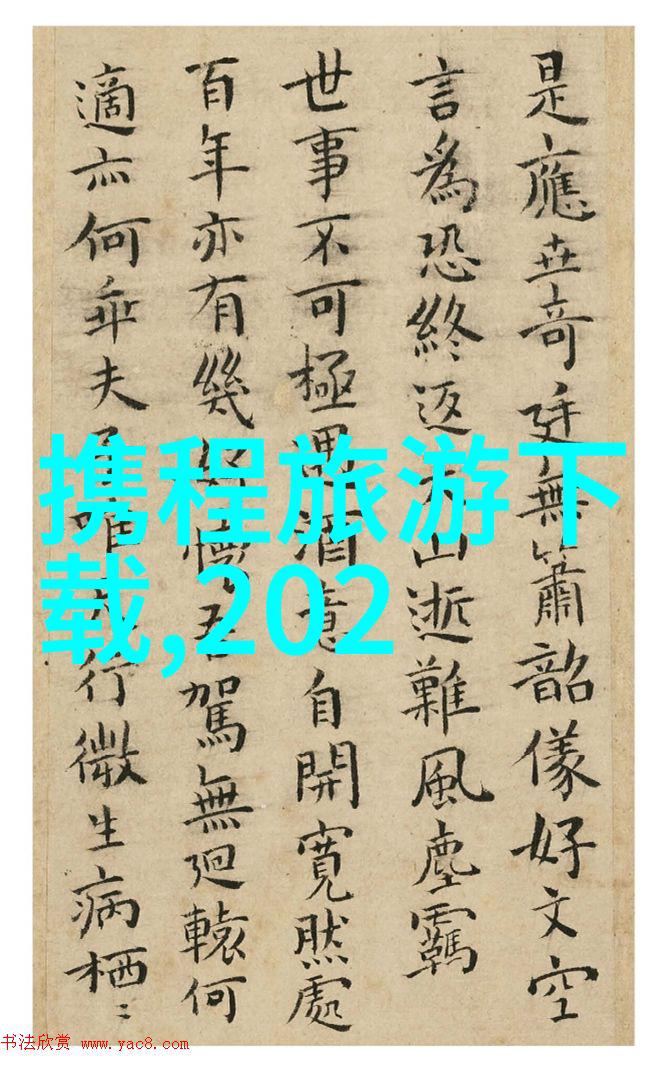 是應世奇廷無簫韶儀好文空
言為恐終返山逝難風塵羈
世事不可極遇酒意自開寬然處
百年亦有幾君駕無迴轅何
適亦何乖夫行微生病栖〻
携程旅游下
载,202
书法欣赏 www.yac8.com